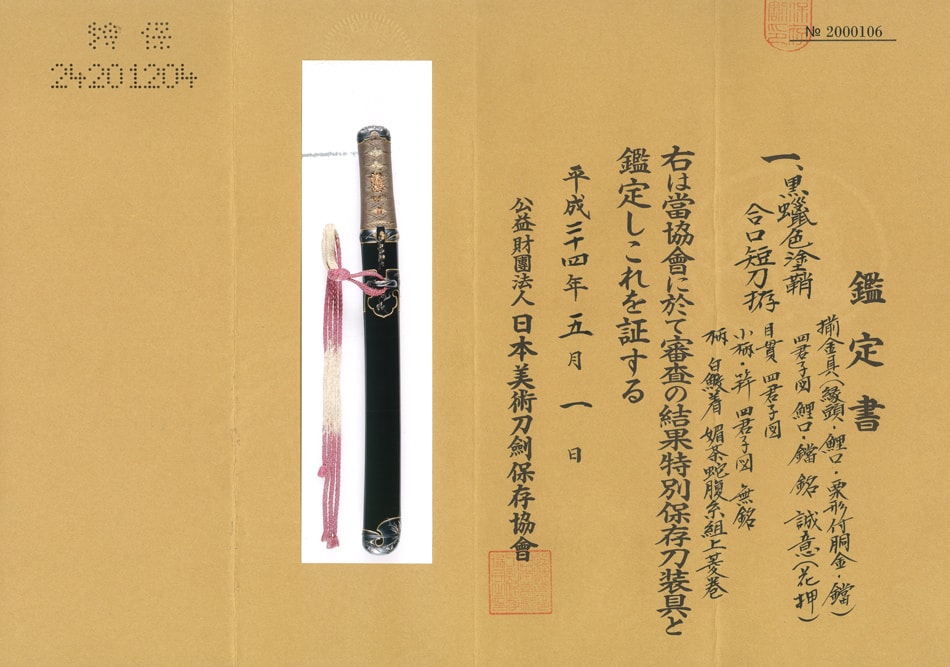 特保
24201204
№ 2000106
鑑定書
一、黒蠟色塗鞘
合口短刀拵
揃金具(縁頭・鯉口・栗形付胴金・鐺)
四君子図 鯉口・鐺 銘 誠意(花押)
目貫 四君子図
小柄・笄 四君子図 無銘
柄 白鮫着 媚茶蛇腹糸組上菱巻
右は當協會に於て審査の結果特別保存刀装具と
鑑定しこれを証する
平成二十四年五月一日
公益財團法人 日本美術刀劍保存協會